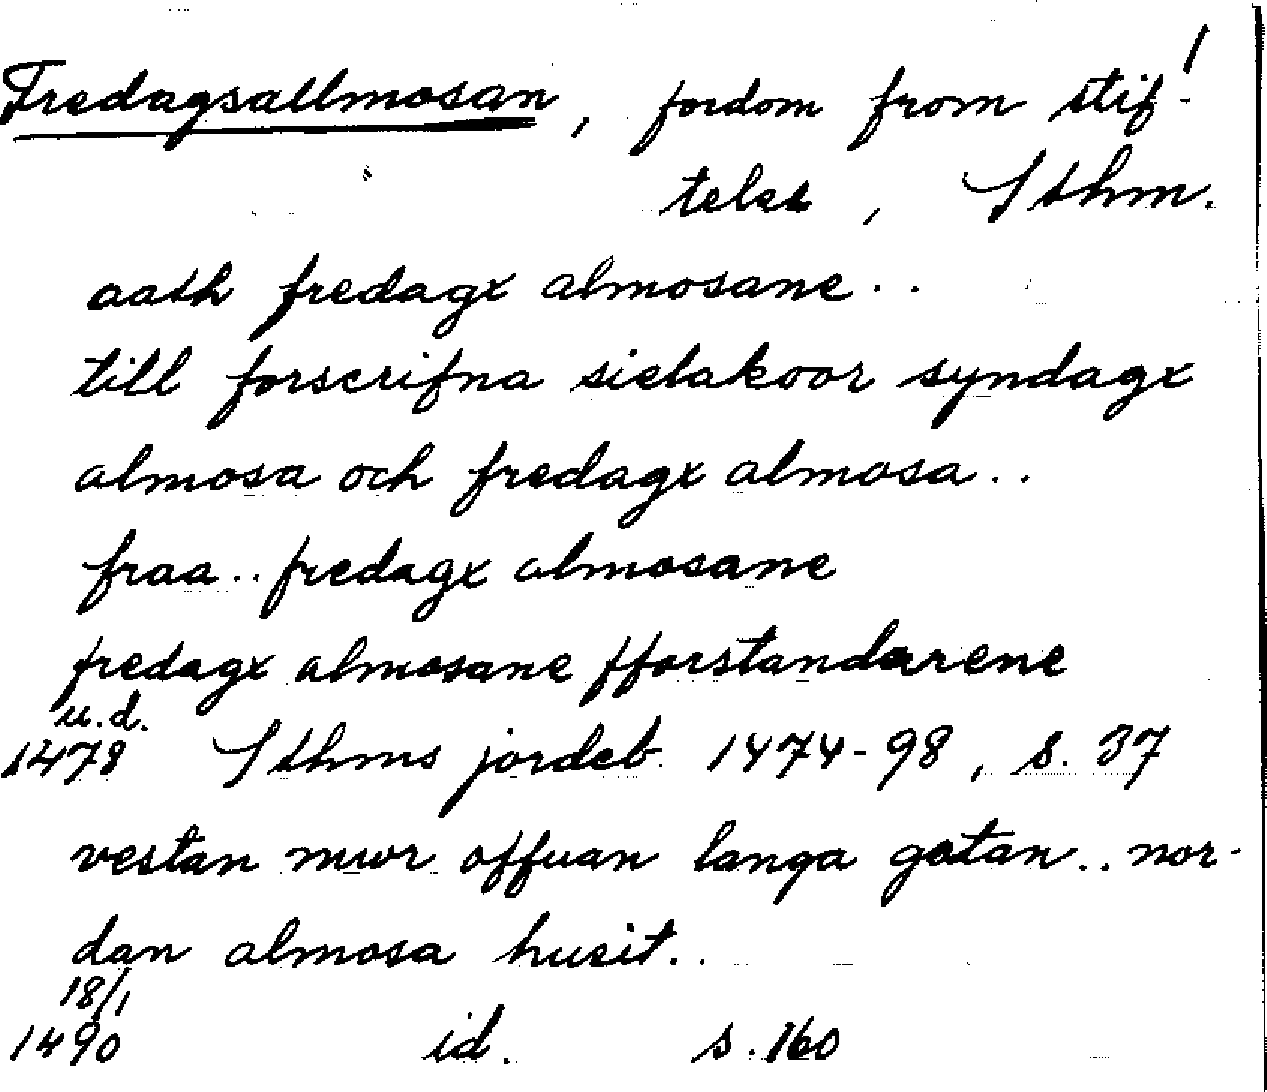 1
Fredagsallmosan, fordom from stif-
telse, Sthm.
aath fredagx almosane..
till forscrifna sielakoor syndagx
almosa och fredagx almosa..
fraa.. fredagx almosane
fredagx almosane fforstandarene
u.d.
1478 Sthms jordeb. 1474-98, s. 37
vestan mwr offuan langa gatan.. nor-
dan almosa husit..
18/1
1490 id. s. 160